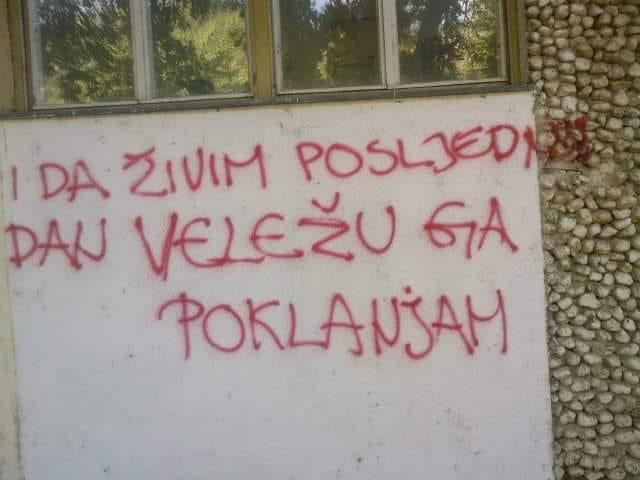 I DA ŽIVIM POSLJEDNJI
DAN VELEŽU GA
POKLANJAM